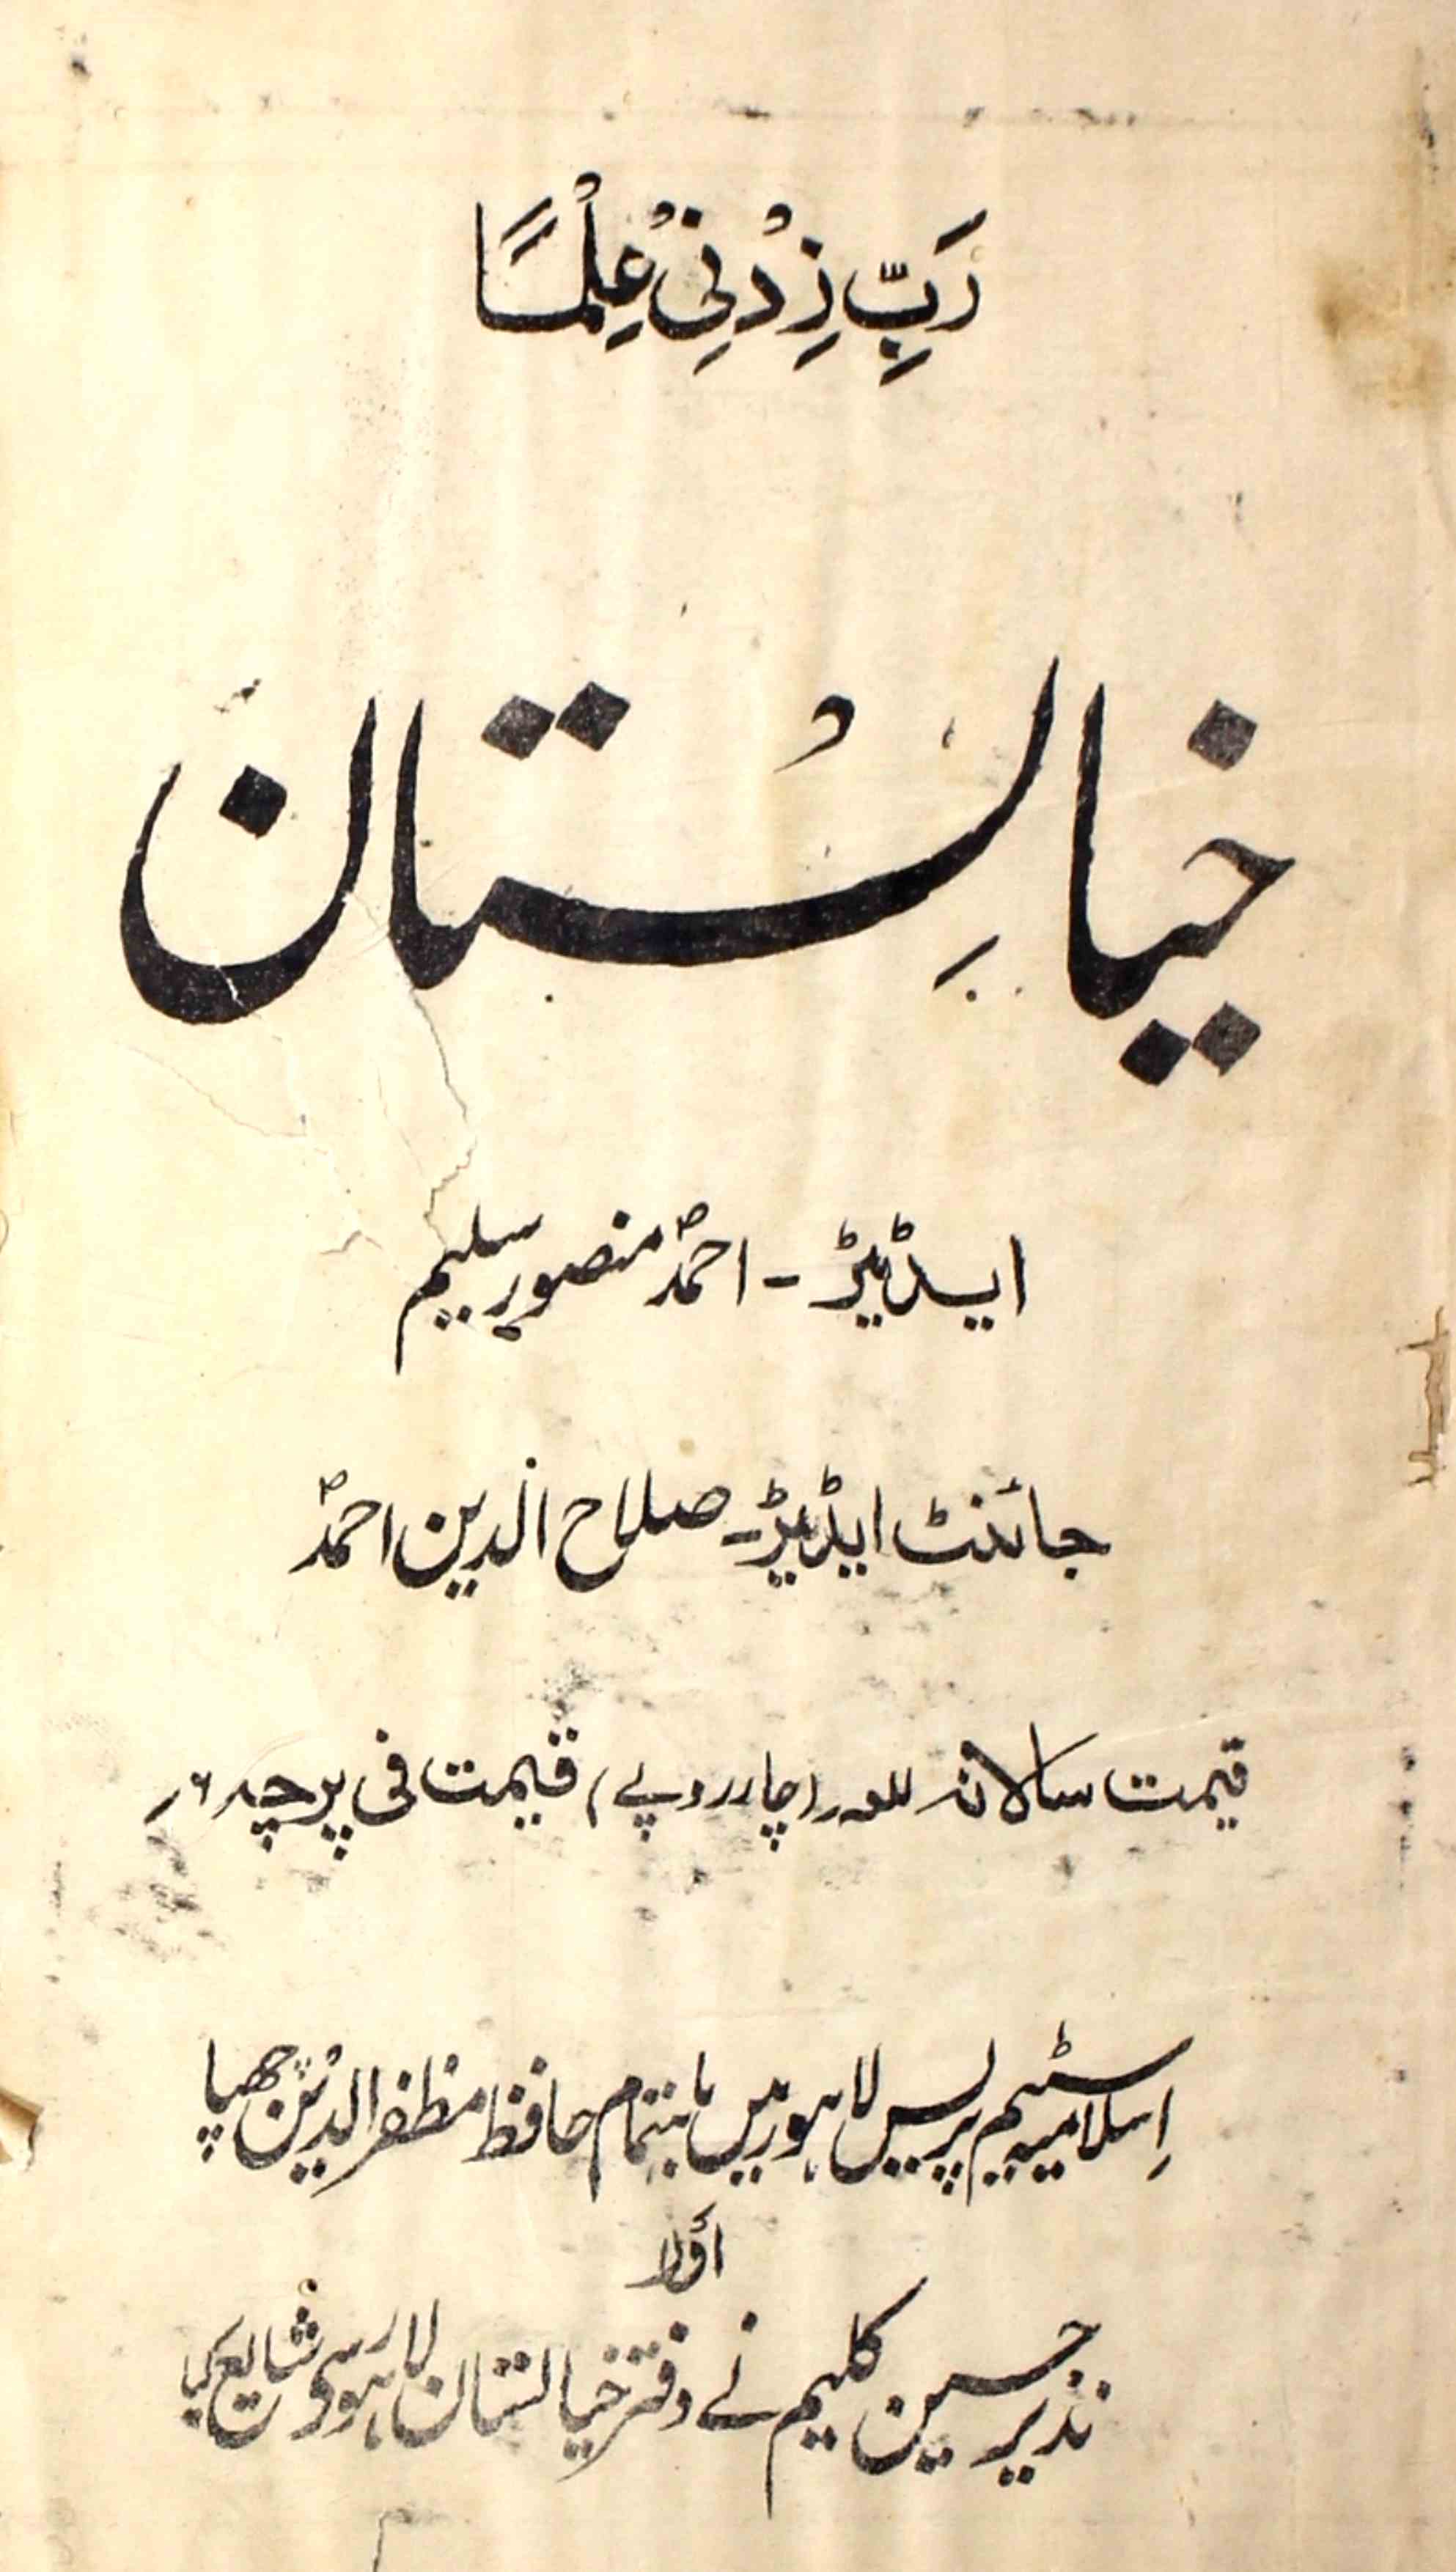 رَبِّ زِدْنِیْ عِلْمًا
خیالِسْتان
ایڈیٹر - احمدؐ منصور سلیم
جائنٹ ایڈیٹر - صلاح الدین احمدؐ
قیمت سالانہ للعہ ر (چار روپے) قیمت فی پرچہ ۶ر
اِسلامیہ سٹیم پریس لاہور میں باہتمام حافظ مظفر الدین چھپا
اَور
نذیر حسین کلیم نے دفتر خیالستان لاہور سی شایع کیا